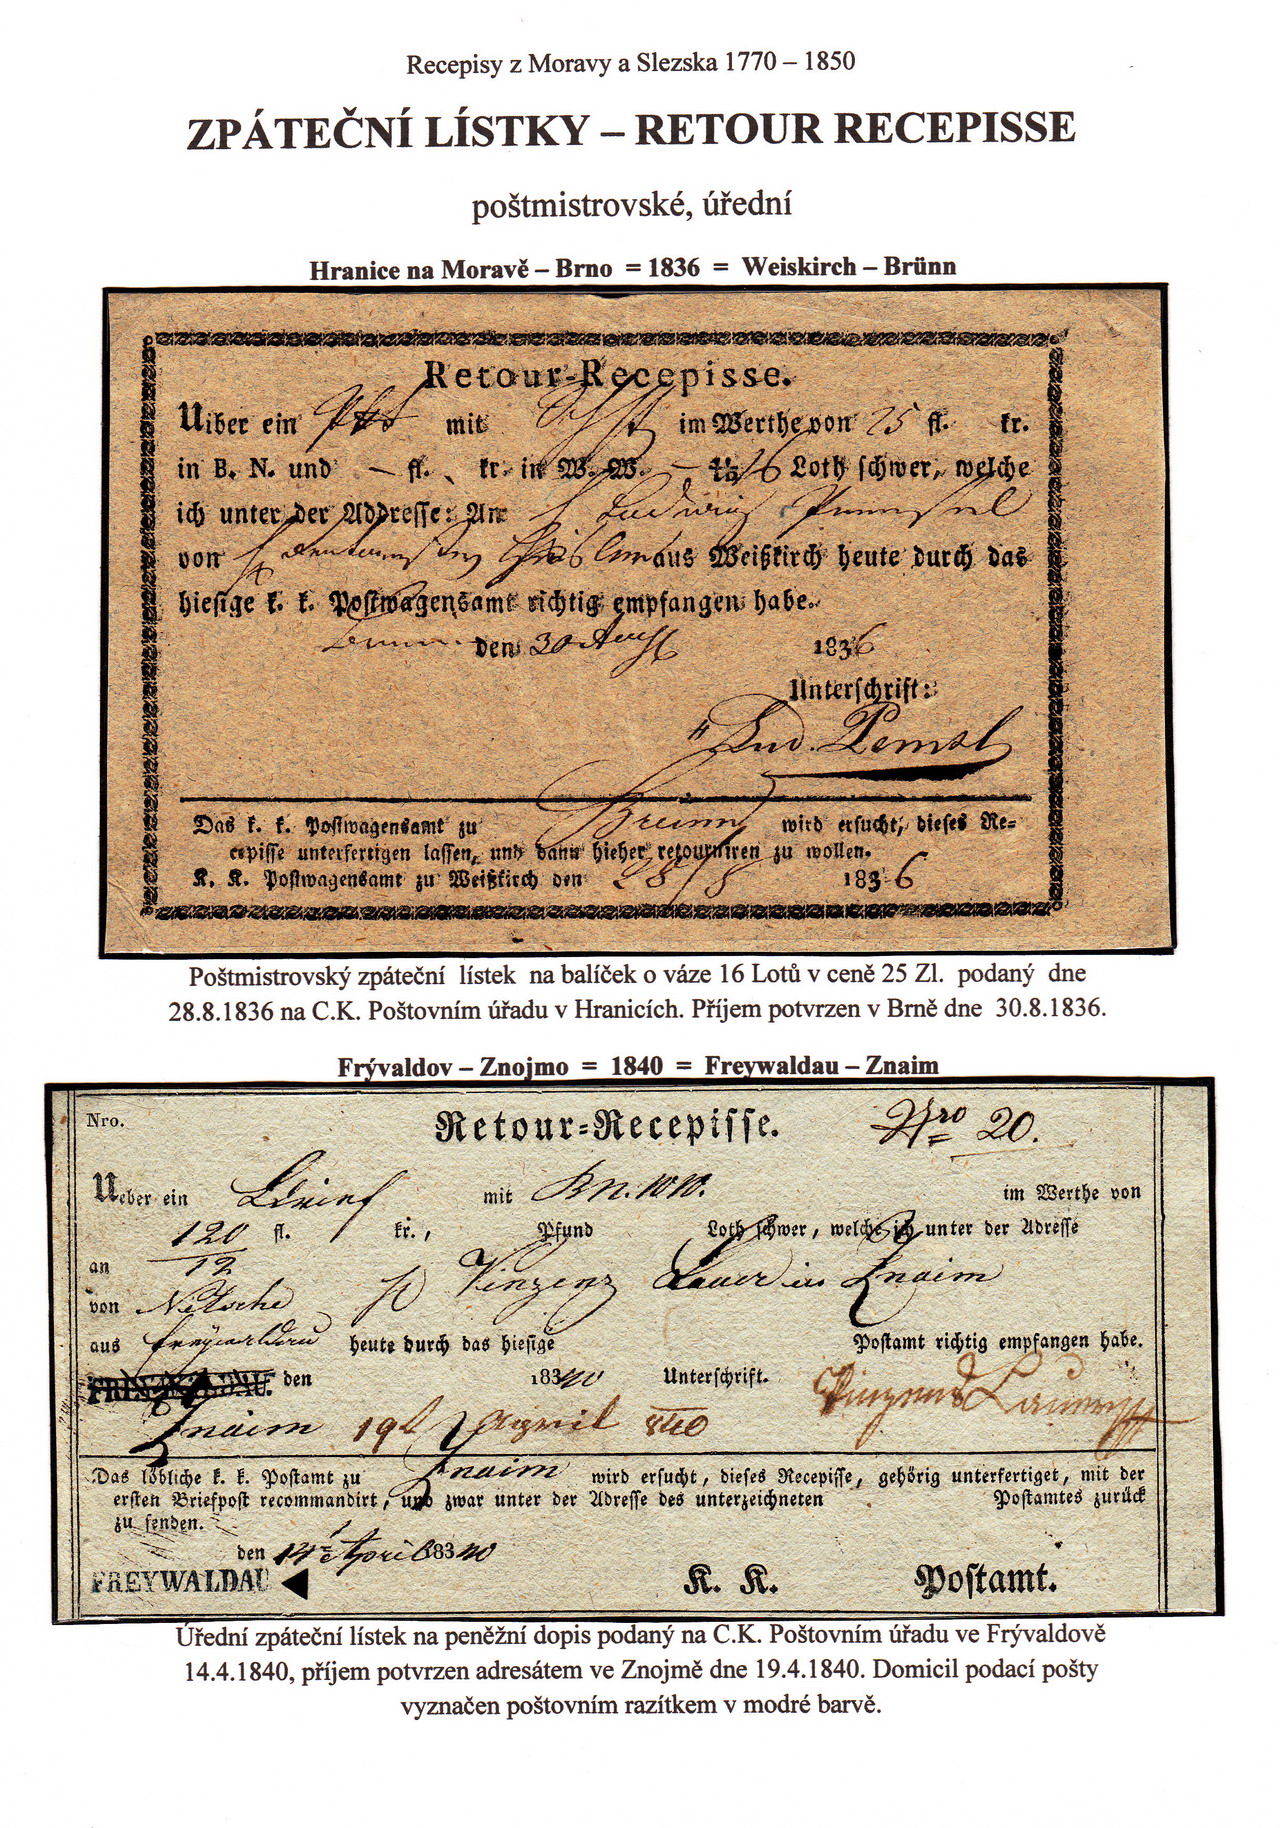 Recepisy z Moravy a Slezska 1770 – 1850
ZPÁTEČNÍ LÍSTKY – RETOUR RECEPISSE
poštmistrovské, úřední
Hranice na Moravě – Brno = 1836 = Weiskirch – Brünn
Retour-Recepisse.
Uiber ein mit im Werthe von 25 fl. kr.
in B. N. und – fl. kr. in W. W. – 16 Loth schwer, welche
ich unter der Addresse: An Ludwig
von aus Weißkirch heute durch das
hiesige k. k. Postwagensamt richtig empfangen habe.
den 30 Aug 1836
Unterschrift:
Lud. Pemsl
Das k. k. Postwagensamt zu Brünn wird ersucht, dieses Re-
cepisse unterfertigen lassen, und dann hieher retourniren zu wollen.
K. K. Postwagensamt zu Weißkirch den 28/8 1836
Poštmistrovský zpáteční lístek na balíček o váze 16 Lotů v ceně 25 Zl. podaný dne
28.8.1836 na C.K. Poštovním úřadu v Hranicích. Příjem potvrzen v Brně dne 30.8.1836.
Frývaldov – Znojmo = 1840 = Freywaldau – Znaim
Nro. Retour-Recepisse. Nro 20.
Ueber ein mit im Werthe von
120 fl. kr., Pfund Loth schwer, welche ich unter der Adresse
an 12 Vinzenz Lauer in Znaim
von Nitsche
aus Freywaldau heute durch das hiesige Postamt richtig empfangen habe.
den 1840 Unterschrift. Vinzenz Lauer
Znaim 19t April 840
Das löbliche k. k. Postamt zu Znaim wird ersucht, dieses Recepisse, gehörig unterfertiget, mit der
ersten Briefpost recommandirt, und zwar unter der Adresse des unterzeichneten Postamtes zurück
zu senden.
den 14 April 1840
FREYWALDAU K. K. Postamt.
Úřední zpáteční lístek na peněžní dopis podaný na C.K. Poštovním úřadu ve Frývaldově
14.4.1840, příjem potvrzen adresátem ve Znojmě dne 19.4.1840. Domicil podací pošty
vyznačen poštovním razítkem v modré barvě.